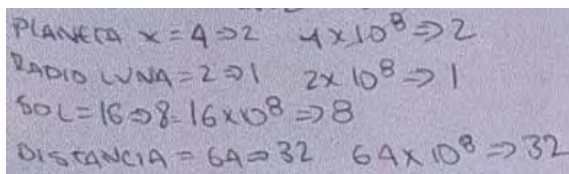 PLANETA X = 4 ⇒ 2 4 x 10⁸ ⇒ 2
RADIO LUNA = 2 ⇒ 1 2 x 10⁸ ⇒ 1
SOL = 16 ⇒ 8 = 16 x 10⁸ ⇒ 8
DISTANCIA = 64 ⇒ 32 64 x 10⁸ ⇒ 32